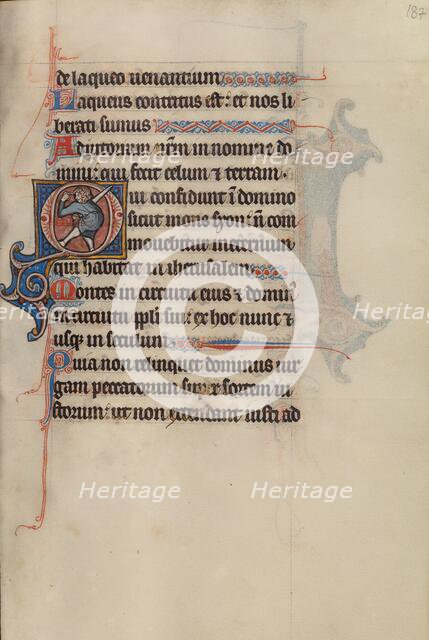 187
de laqueo uenantium
Laqueus contritus est: et nos li
berati sumus
Adiutorium nrm in nomine do
mini: qui fecit celum & terram.
Qui confidunt i domino
sicut mons syon: n com
mouebitur in eternum
qui habitat in iherusalem
Montes in circuitu eius & domin
in circuitu ppli sui: ex hoc nunc &
usq in seculum
Quia non relinquet dominus uir
gam peccatorum super sortem iu
storum: ut non extendant iusti ad
Heritage Heritage
Heritage Heritage Heritage
Heritage Heritage